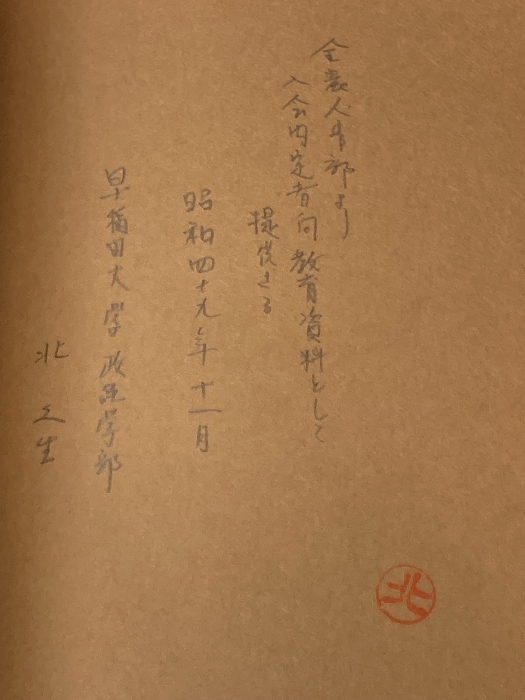 全農人事部より
入会内定者向教育資料として
提供さる
昭和四十九年十一月
早稲田大学政経学部
北 文生
北